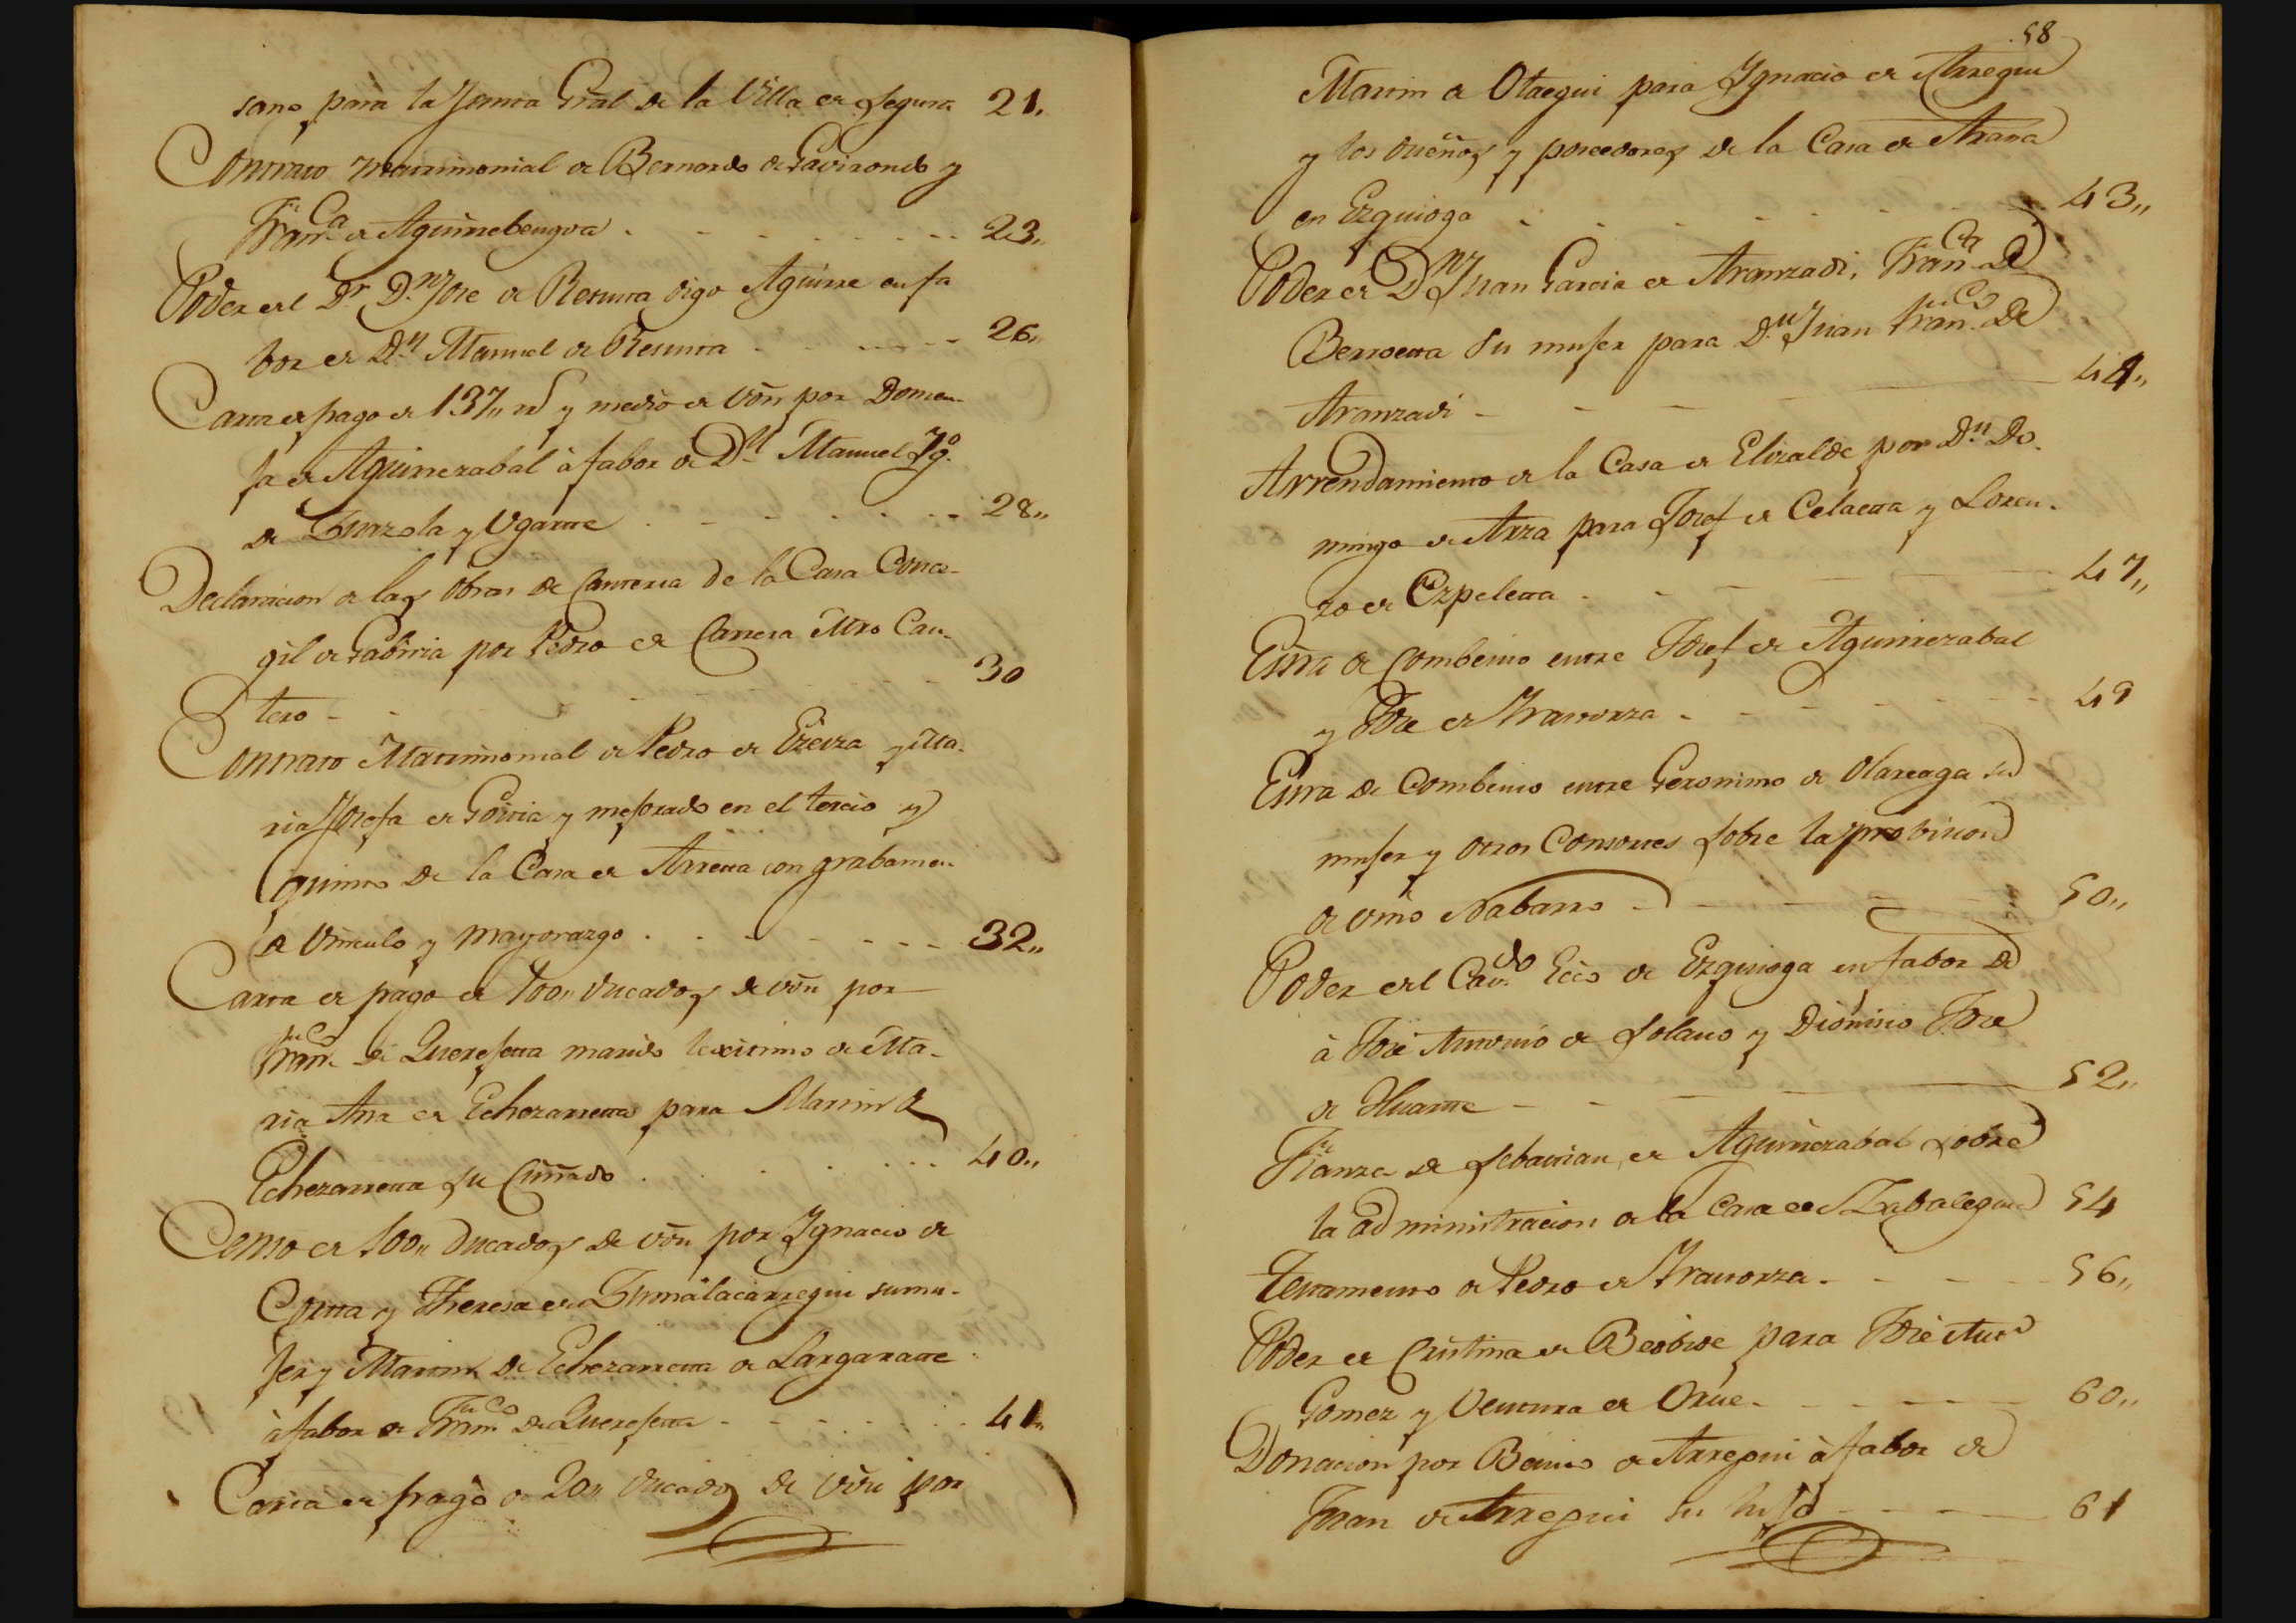 sano para la Junta Gral de la Villa de Segura 21,,
Contrato matrimonial de Bernardo de Gavirondo y
Franca de Aguirrebengoa 23,,
Poder del Dr. Dn Jose de Resusta digo Aguirre en fa
bor de Dn Manuel de Resusta 26,,
Carta de pago de 137,, rs y medio de von por Domen-
ja de Aguirrezabal à fabor de Dn Manuel Igo.
de Zuazola y Ugarte 28,,
Declaracion de las obras de Canteria de la Casa Conce-
gil de Gabiria por Pedro de Carrera Mro Can-
tero 30
Contrato Matrimonial de Pedro de Ezeiza y Ma-
ria Josefa de Goitia y mejorado en el tercio y
quinto de la Casa de Arreta con grabamen
de Vinculo y mayorazgo 32,,
Carta de pago de 100,, Ducados de von por
Franco de Querejeta marido lexitimo de Ma-
ria Ana de Echezarreta para Martin de
Echezarreta su Cuñado 40,,
Censo de 100,, Ducados de von por Ignacio de
Cortta y Theresa de Zumalacarregui su mu-
jer y Martin de Echezarreta de Larganatte
à fabor de Franco de Querejeta 41,,
Carta de pago de 20,, Ducados de von por
58
Martin de Otaegui para Ignacio de Arregui
y los dueños y poseedores de la Casa de Arana
en Ezquioga 43,,
Poder de Dn Juan Garcia de Aranzadi, Franca de
Berroeta su mujer para Dn Juan Franco de
Aranzadi 44,,
Arrendamiento de la Casa de Elizalde por Dn Do-
mingo de Arza para Josef de Celaeta y Loren-
zo de Ezpeleta 47,,
Esrra de Combenio entre Josef de Aguirrezabal
y Jose de Irastorza 49
Esrra de Combenio entre Geronimo de Olareaga su
mujer y otros Consortes sobre la probision
de vino Nabarro 50,,
Poder del Cavdo Ecco de Ezquioga en fabor de
à José Antonio de Solano y Dionisio Jose
de Huarte 52,,
Fianza de Sebastian de Aguirrezabal sobre
la administracion de la Casa de Zabalegui 54
Testamento de Pedro de Irastorza 56,,
Poder de Cristina de Beobide para José Anto
Gomez y Ventura de Orue 60,,
Donacion por Benito de Arregui à fabor de
Juan de Arregui su hijo 61